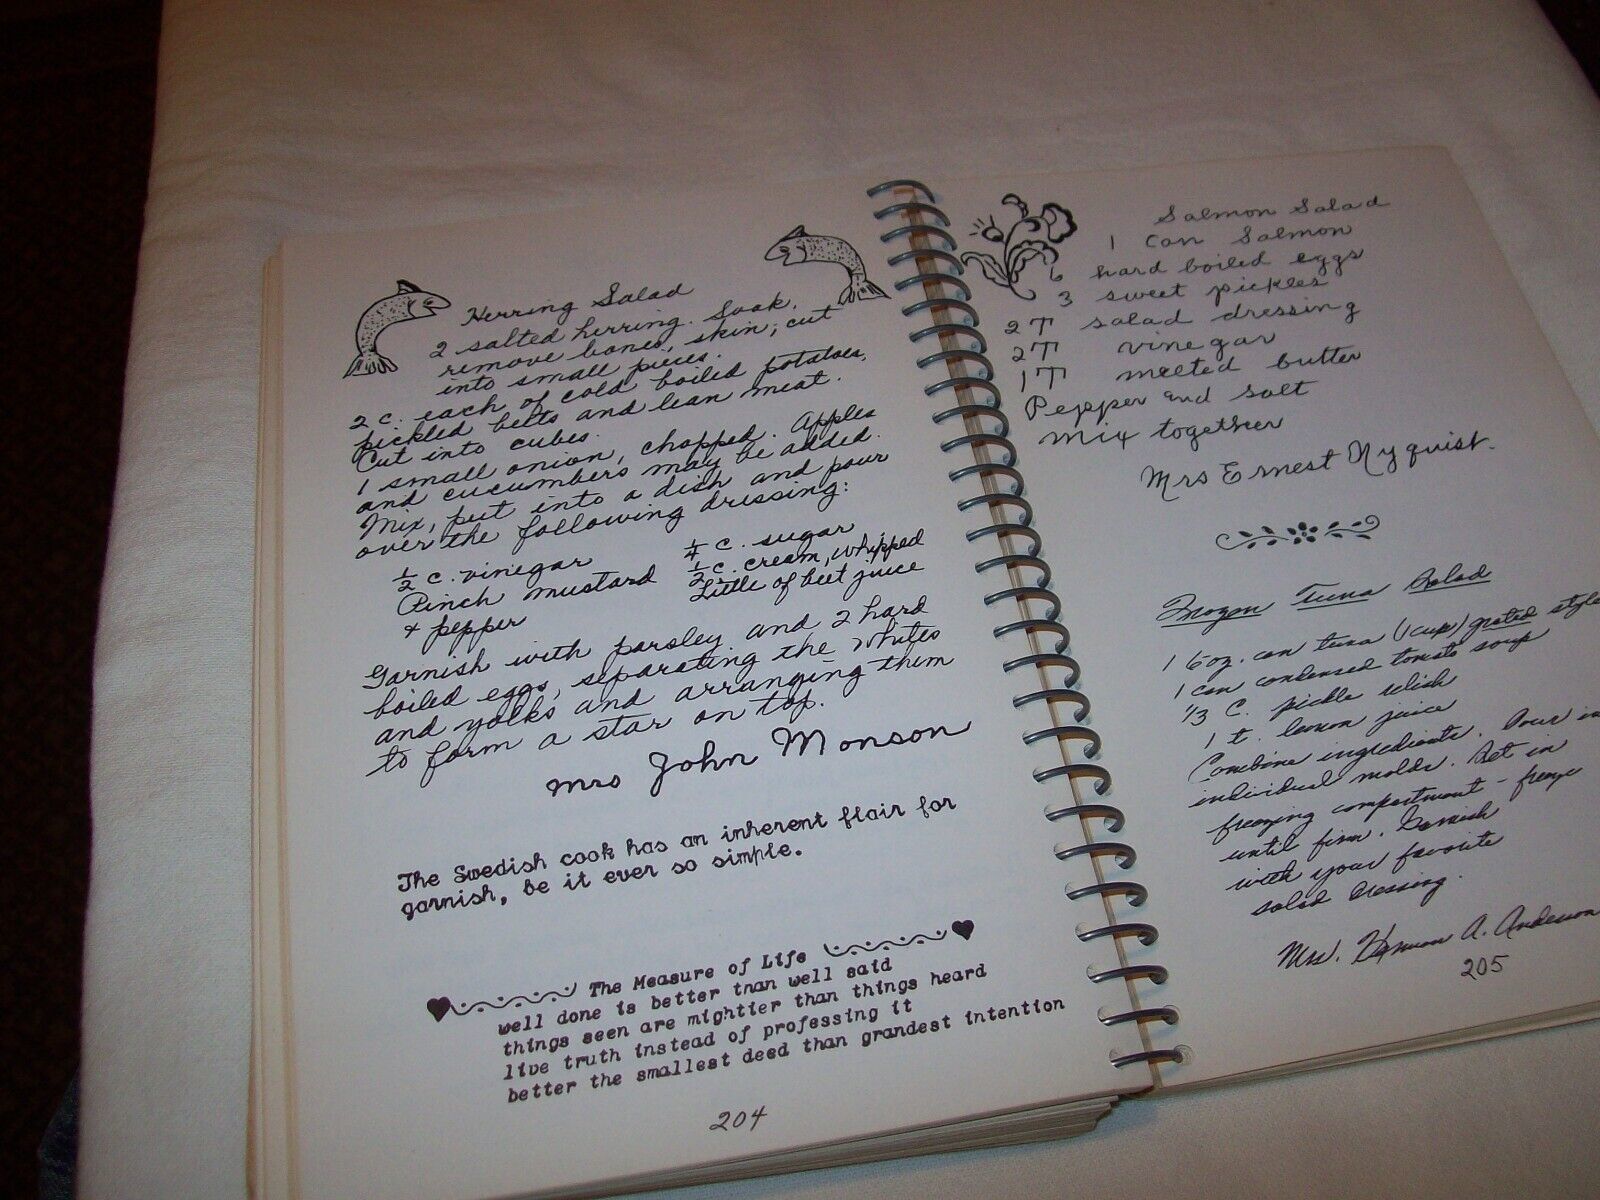 Herring Salad
2 salted herring. Soak,
remove bones, skin; cut
into small pieces.
2 c. each of cold boiled potatoes,
pickled beets and lean meat.
Cut into cubes.
1 small onion, chopped. Apples
and cucumbers may be added.
Mix, put into a dish and pour
over the following dressing:
1/2 c. vinegar
Pinch mustard
+ pepper
1/4 c. sugar
1/2 c. cream, whipped
Little of beet juice
Garnish with parsley and 2 hard
boiled eggs, separating the whites
and yolks and arranging them
to form a star on top.
Mrs John Monson
The Swedish cook has an inherent flair for
garnish, be it ever so simple.
The Measure of Life
well done is better than well said
things seen are mightier than things heard
live truth instead of professing it
better the smallest deed than grandest intention
204
Salmon Salad
1 can Salmon
6 hard boiled eggs
3 sweet pickles
2T salad dressing
2T vinegar
1T melted butter
Pepper and salt
Mix together
Mrs Ernest Nyquist.
Frozen Tuna Salad
1 6 oz. can tuna (1 cup) grated style
1 can condensed tomato soup
1/3 C. pickle relish
1 t. lemon juice
Combine ingredients. Pour in
individual molds. Set in
freezing compartment - freeze
until firm. Garnish
with your favorite
salad dressing.
Mrs. A. Anderson
205